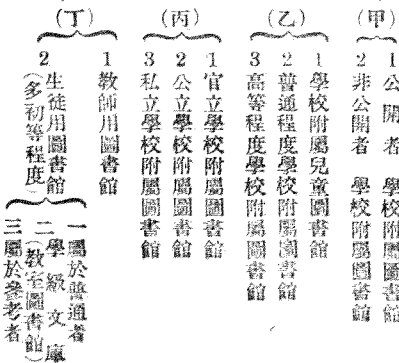 (甲)
1 公開者 學校附屬圖書館
2 非公開者 學校附屬圖書館
(乙)
1 學校附屬兒童圖書館
2 普通程度學校附屬圖書館
3 高等程度學校附屬圖書館
(丙)
1 官立學校附屬圖書館
2 公立學校附屬圖書館
3 私立學校附屬圖書館
(丁)
1 教師用圖書館
2 生徒用圖書館
(多初等程度)
一 屬於普通者
二 學級文庫
(教室圖書館)
三 屬於參考者